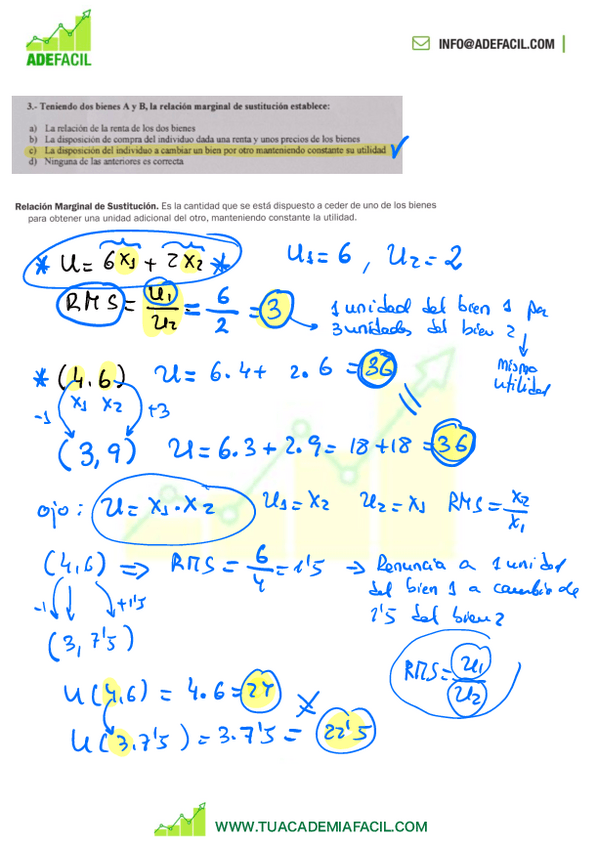 ADEFACIL
INFO@ADEFACIL.COM
3.- Teniendo dos bienes A y B, la relación marginal de sustitución establece:
a) La relación de la renta de los dos bienes
b) La disposición de compra del individuo dada una renta y unos precios de los bienes
c) La disposición del individuo a cambiar un bien por otro manteniendo constante su utilidad
d) Ninguna de las anteriores es correcta
Relación Marginal de Sustitución. Es la cantidad que se está dispuesto a ceder de uno de los bienes
para obtener una unidad adicional del otro, manteniendo constante la utilidad.
* U = 6x1 + 2x2 * U1 = 6 , U2 = 2
RMS = U1/U2 = 6/2 = 3 → 1 unidad del bien 1 por
3 unidades del bien 2
↓
misma
utilidad
* (4,6) U = 6.4 + 2.6 = 36
x1 x2
-1 +3 =
(3,9) U = 6.3 + 2.9 = 18+18 = 36
ojo: U = x1 . x2 U1 = x2 U2 = x1 RMS = x2/x1
(4,6) ⇒ RMS = 6/4 = 1'5 → Renuncia a 1 unidad
del bien 1 a cambio de
1'5 del bien 2
-1 +1'5
(3, 7'5)
RMS = U1/U2
U(4,6) = 4.6 = 24
≠
U(3,7'5) = 3.7'5 = 22'5
WWW.TUACADEMIAFACIL.COM